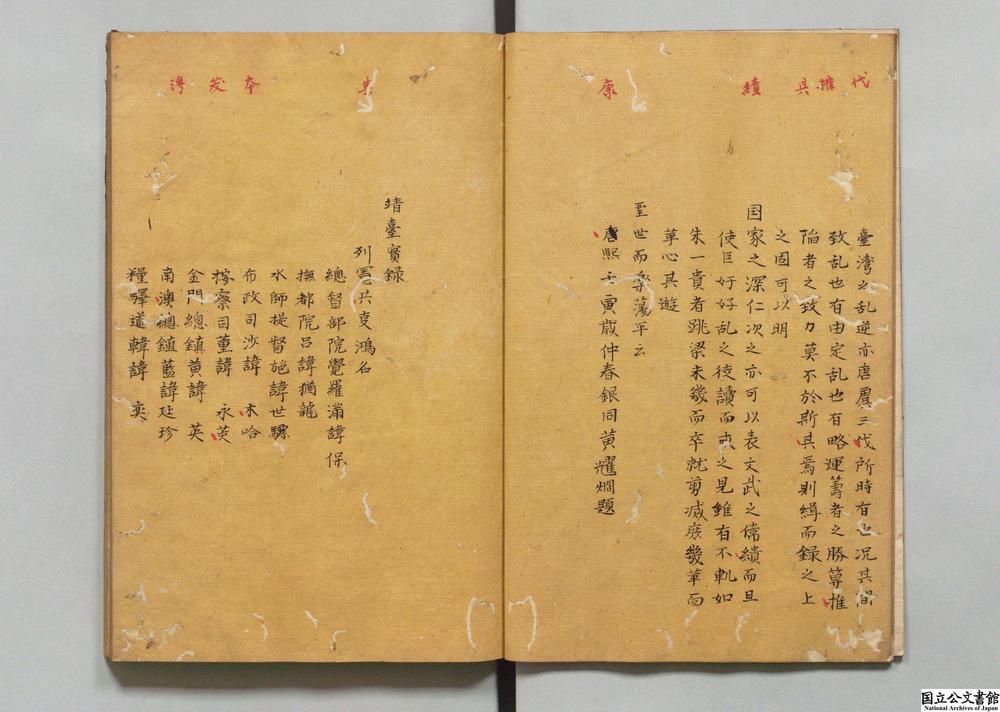 代 推 具 續 康
臺灣之乱逆亦唐虞三代所時有也况其間
致乱也有由定乱也有略運籌者之勝算推
陥者之致力莫不於斯具焉則緝而録之上
之固可以明
国家之深仁次之亦可以表文武之偉績而且
使巨奸好乱之徒讀而戒之見雖有不軌如
朱一貴者跳梁未幾而卒就剪滅庶幾革面
革心其遊
聖世而樂蕩平云
康熙壬寅歳仲春銀同黄耀烱題
共 本 炎 得
靖臺實録
列憲共叓鴻名
總督部院覺羅滿諱保
撫都院吕諱猶龍
水師提督施諱世驃
布政司沙諱木哈
按察司董諱永芠
金門總鎮黄諱英
南澳總鎮藍諱廷珍
糧驛道韓諱奕
国立公文書館
National Archives of Japan